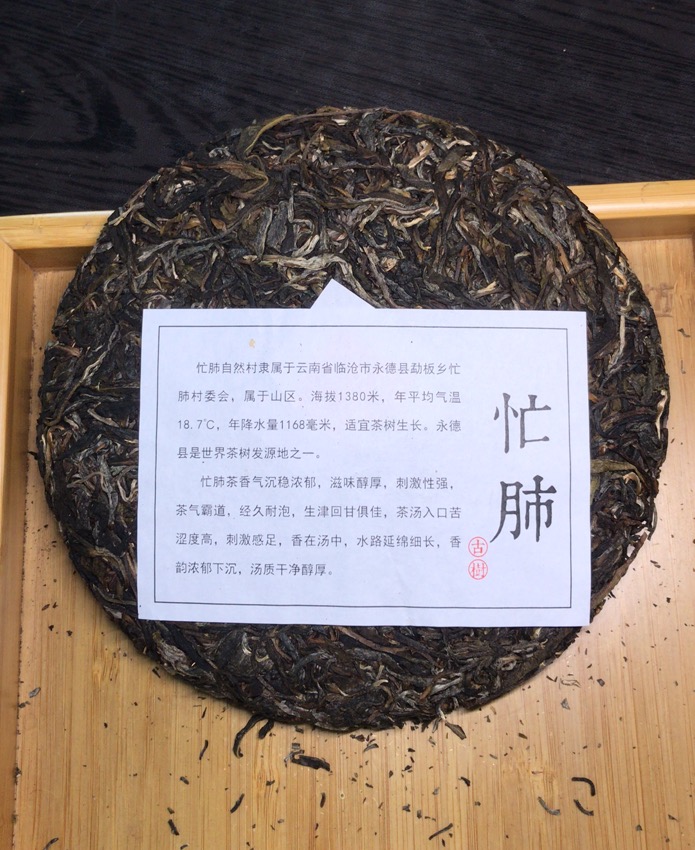 忙肺自然村隶属于云南省临沧市永德县勐板乡忙
肺村委会，属于山区。海拔1380米，年平均气温
18.7℃，年降水量1168毫米，适宜茶树生长。永德
县是世界茶树发源地之一。
忙肺茶香气沉稳浓郁，滋味醇厚，刺激性强，
茶气霸道，经久耐泡，生津回甘俱佳，茶汤入口苦
涩度高，刺激感足，香在汤中，水路延绵细长，香
韵浓郁下沉，汤质干净醇厚。
忙肺
古樹